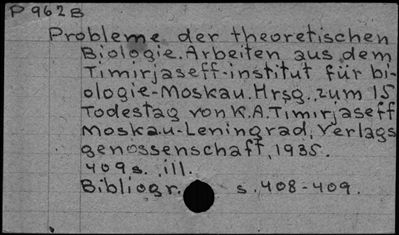 P 962 B
Probleme der theoretischen
Biologie. Arbeiten aus dem
Timirjaseff-institut für bi-
ologie-Moskau. Hrsg. zum 15
Todestag von K.A. Timirjaseff
Moskau-Leningrad, Verlags
genossenschaft, 1935.
409 s. ill.
Bibliogr. s. 408-409.